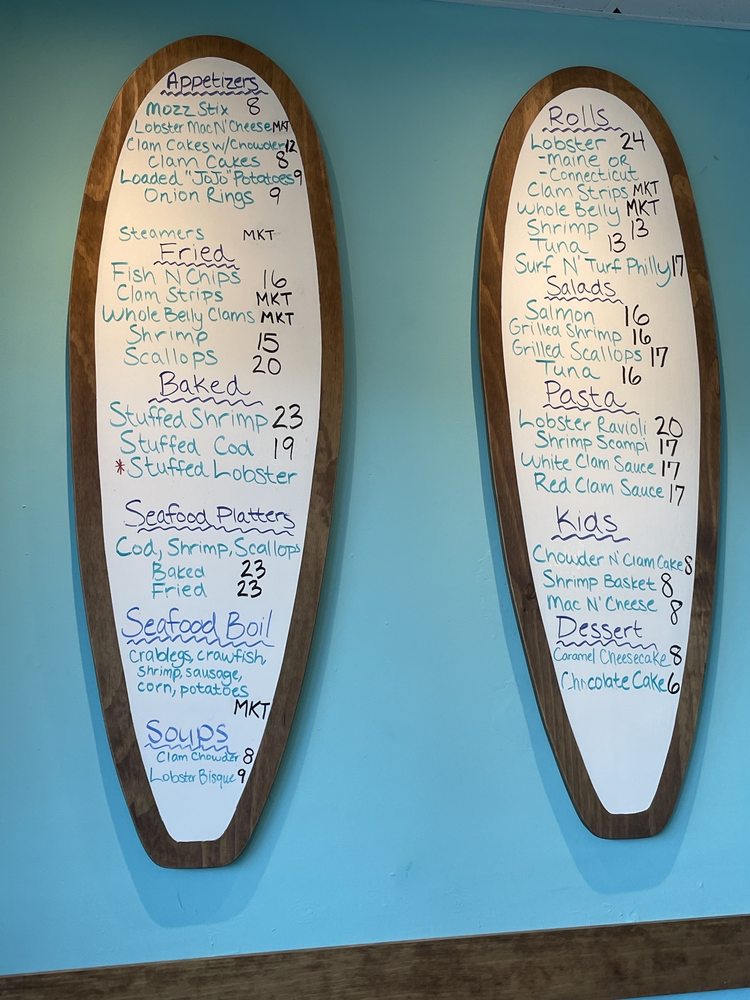 Appetizers
Mozz Stix 8
Lobster Mac N' Cheese MKT
Clam Cakes w/Chowder 12
Clam Cakes 8
Loaded "JoJo" Potatoes 9
Onion Rings 9
Steamers MKT
Fried
Fish N Chips 16
Clam Strips MKT
Whole Belly Clams MKT
Shrimp 15
Scallops 20
Baked
Stuffed Shrimp 23
Stuffed Cod 19
*Stuffed Lobster
Seafood Platters
Cod, Shrimp, Scallops
Baked 23
Fried 23
Seafood Boil
Crablegs, crawfish,
shrimp, sausage,
corn, potatoes
MKT
Soups
Clam Chowder 8
Lobster Bisque 9
Rolls
Lobster 24
-maine or
-Connecticut
Clam Strips MKT
Whole Belly MKT
Shrimp 13
Tuna 13
Surf N' Turf Philly 17
Salads
Salmon 16
Grilled Shrimp 16
Grilled Scallops 17
Tuna 16
Pasta
Lobster Ravioli 20
Shrimp Scampi 17
White Clam Sauce 17
Red Clam Sauce 17
Kids
Chowder N' Clam Cake 8
Shrimp Basket 8
Mac N' Cheese 8
Dessert
Caramel Cheesecake 8
Chocolate Cake 6